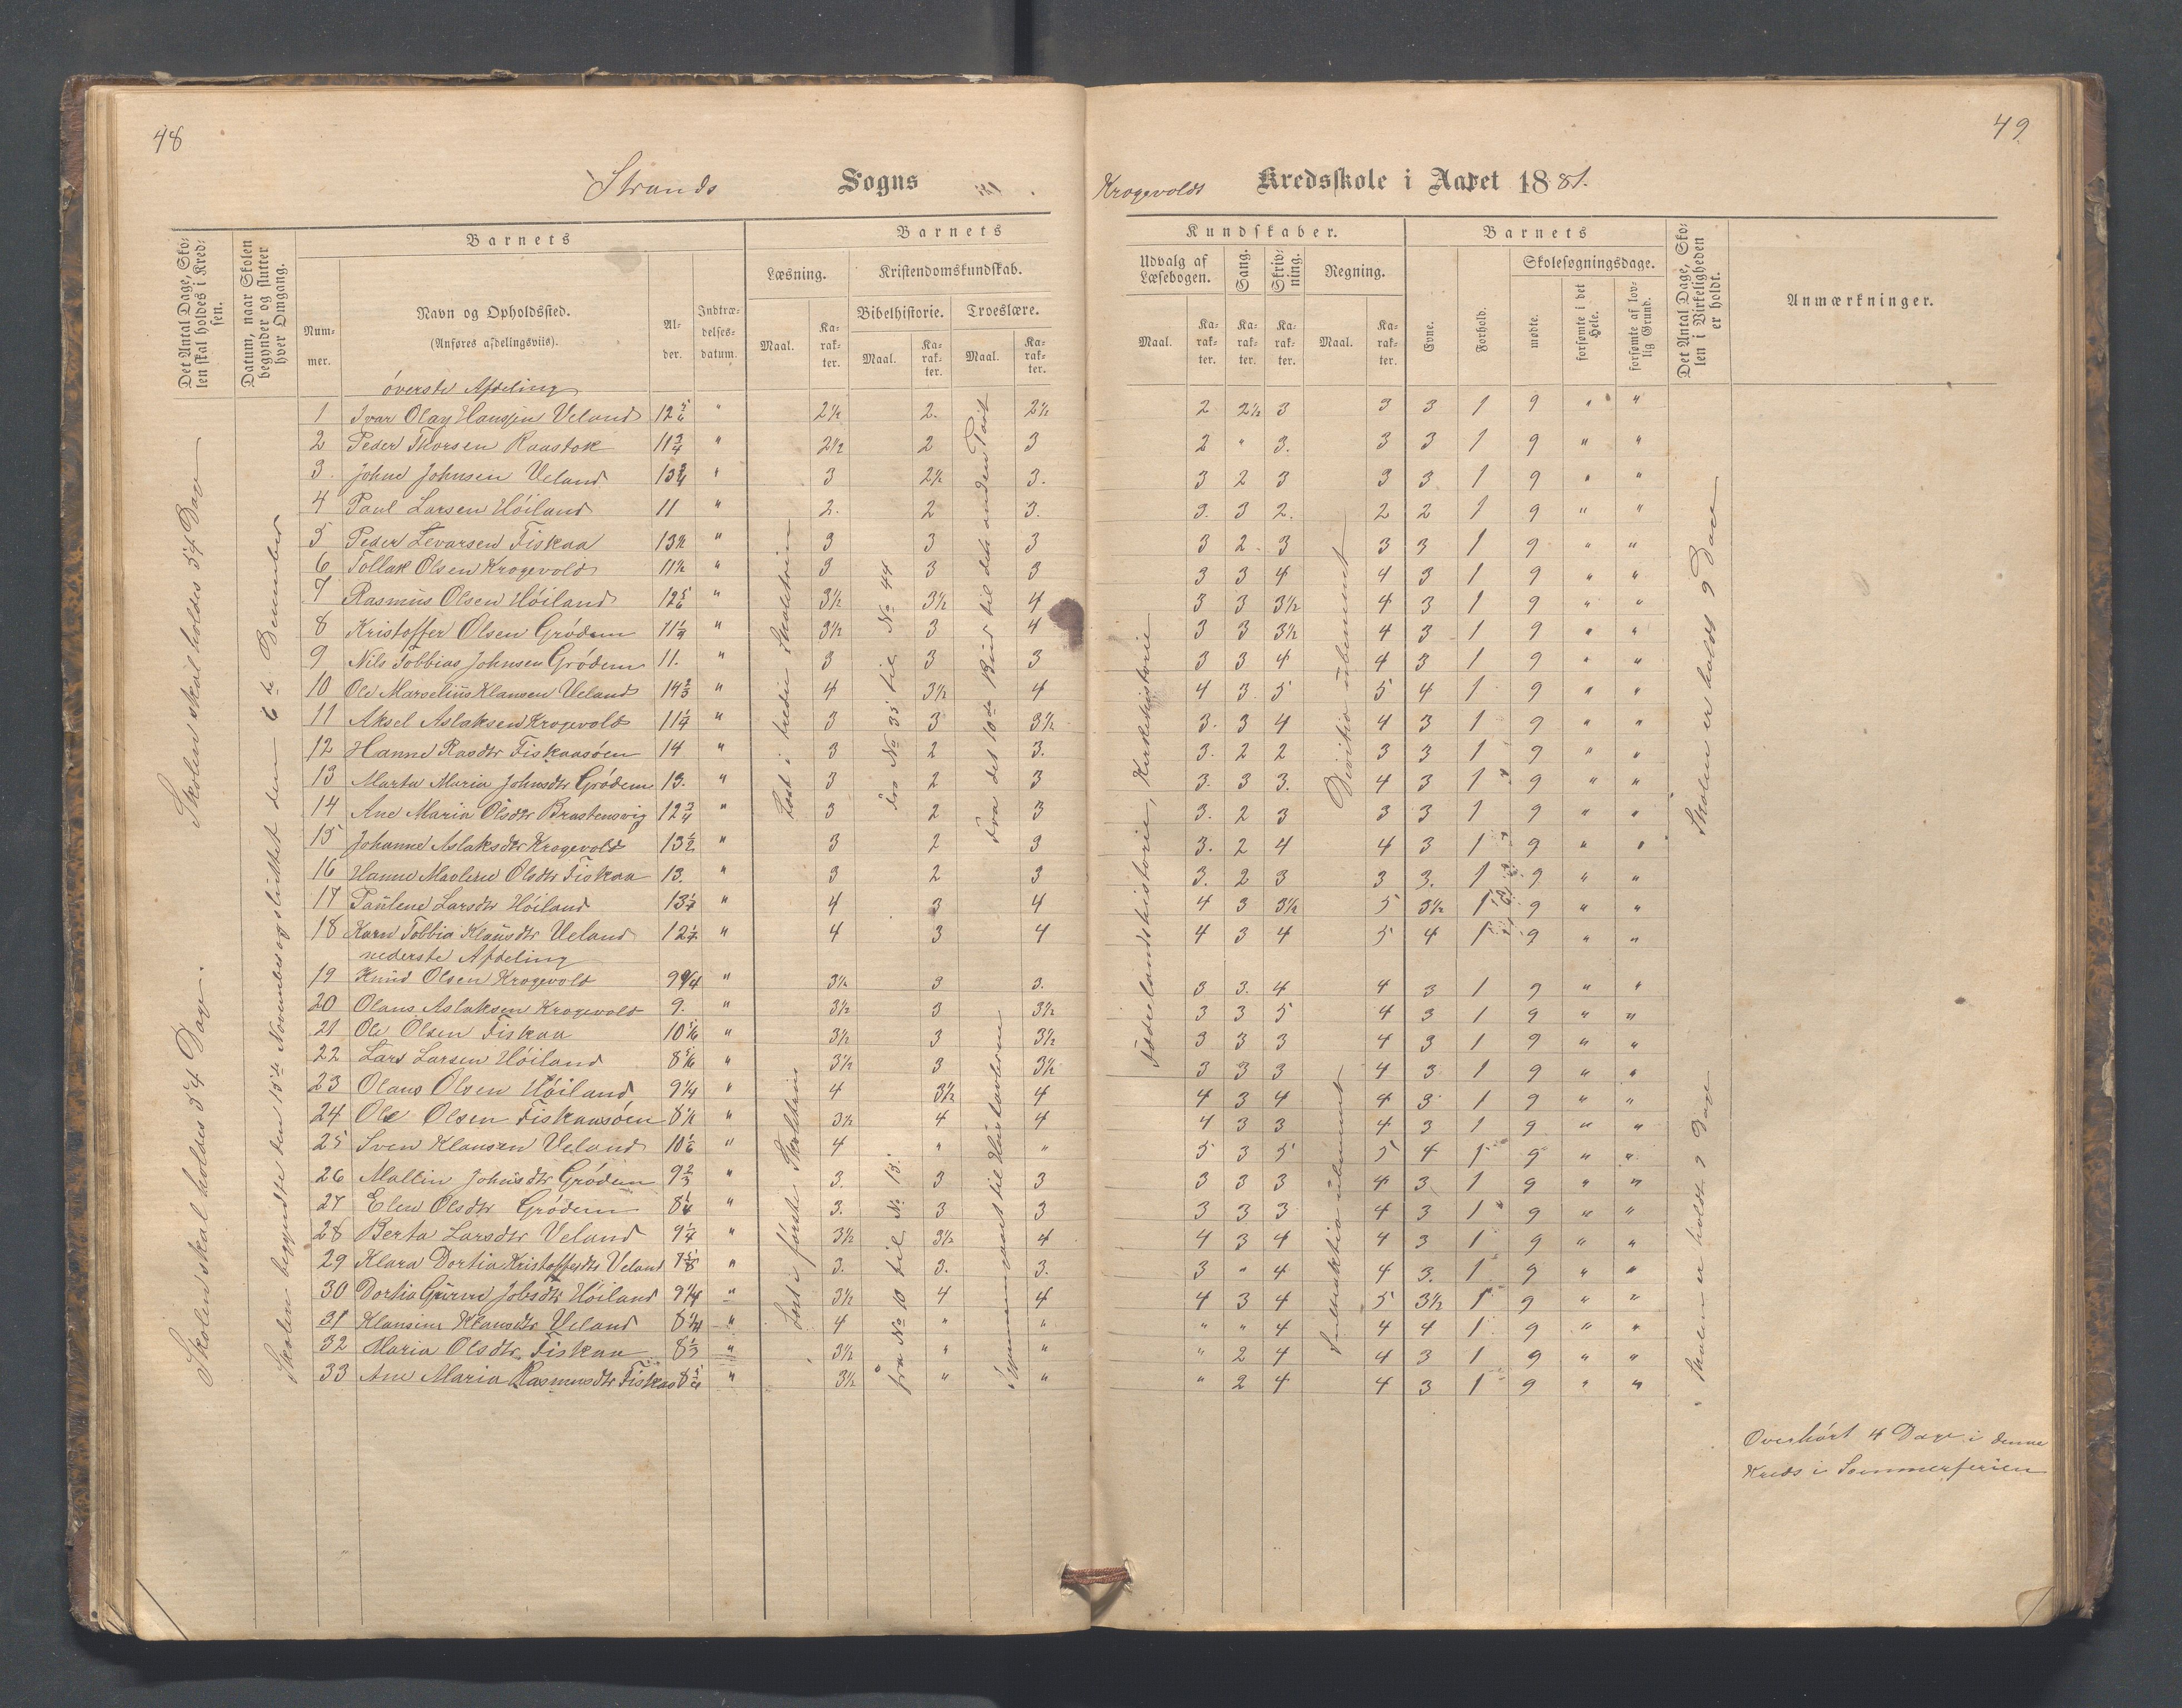 48
49
Strands Sogns
Krogevolds Kredsskole i Aaret 1881.
Det Antal Dage, Skolen skal holdes i Kredsen.
Datum, naar Skolen begynder og slutter hver Omgang.
Barnets
Nummer.
Navn og Opholdssted.
(Anføres afdelingsviis).
Alder.
Indtrædelsesdatum.
Barnets
Læsning.
Maal.
Karakter.
Kristendomskundskab.
Bibelhistorie.
Maal.
Karakter.
Troeslære.
Maal.
Karakter.
Kundskaber.
Udvalg af Læsebogen.
Maal.
Karakter.
Sang.
Karakter.
Skrivning.
Karakter.
Regning.
Maal.
Karakter.
Barnets
Evne.
Forhold.
Skolesøgningsdage.
mødte.
forsømte i det Hele.
forsømte af lovlig Grund.
Det Antal Dage, Skolen i Virkeligheden er holdt.
Anmærkninger.
øverste Afdeling
1 Ivar Olay Hansen Veland 12 5/6 " 2½ 2. 2½ 2 2½ 3 3 3 1 9 " "
2 Peder Thorsen Raustok 11 3/4 " 2½ 2 3 2 " 3. 3 3 1 9 " "
3 Johne Johnsen Veland 13 3/4 " 3 2½ 3. 3 2 3 3 3 1 9 " "
4 Paul Larsen Høiland 11 " 2. 2 3. 3. 3 2. 2 2 1 9 " "
5 Peder Levarsen Fiskaa 13½ " 3 3 3 3 2 3 3 3 1 9 " "
6 Tollak Olsen Krogevold 11½ " 3 3 3 3 3 4 4 3 1 9 " "
7 Rasmus Olsen Høiland 12 5/6 " 3½ 3½ 4 3 3 3½ 4 3 1 9 " "
8 Kristoffer Olsen Grødem " 3½ 3 4 3 3 3½ 4 3 1 9 " "
9 Nils Tobbias Johnsen Grødem 11. " 3 3 3 3 3 4 4 3 1 9 " "
10 Ole Marselius Klausen Veland 14 2/3 " 4 3½ 4 4 3 5 5 4 1 9 " "
11 Aksel Aslaksen Krogevold 11 1/4 " 3 3 3½ 3. 3 4 4 3 1 9 " "
12 Hanne Rasdtr Fiskaasøen 14 " 3 2 3. 3. 2 2 3 3 1 9 " "
13 Marta Maria Johnsdtr Grødem 13. " 3 2 3 3. 3 3. 4 3 1 9 " "
14 Ane Maria Olsdtr 12 3/4 " 3 2 3 3. 2 3 3 3 1 9 " "
15 Johanne Aslaksdtr Krogevold 13 1/2 " 3 2 3 3. 2 4 4 3 1 9 " "
16 Hanne Olsdtr Fiskaa 13. " 3 2 3 3. 2 3 3 3. 1 9 " "
17 Paulene Larsdtr Høiland 13 1/4 " 4 3 4 4 3 3½ 5 3½ 1 9 " "
18 Karn Tobbia Klausdtr Veland 12 1/4 " 4 3 4 4 3 4 5 4 1 9 " "
nederste Afdeling
19 Knud Olsen Krogevold " 3½ 3 3. 3 3. 4 4 3 1 9 " "
20 Olaus Aslaksen Krogevold 9. " 3½ 3 3½ 3 3 5 4 3 1 9 " "
21 Ole Olsen Fiskaa " 3½ 3 3½ 3 3 3 4 3 1 9 " "
22 Lars Larsen Høiland " 3½ 3 3½ 3 3 3 4 3 1 9 " "
23 Olaus Olsen Høiland 9 1/4 " 4 3½ 4 4 3 4 4 3 1 9 " "
24 Ole Olsen Fiskaasøen 8½ " 3½ 4 4 4 3 3 4 3 1 9 " "
25 Sven Klausen Veland 10 1/6 " 4 " " 5 3 5 5 4 1 9 " "
26 Mallin Johnsdtr Grødem 9 2/3 " 3. 3 3 3 3 3 4 3 1 9 " "
27 Elen Olsdtr Grødem 8 1/4 " 3. 3 3 3 3 3 4 3 1 9 " "
28 Berta Larsdtr Veland 9 1/4 " 3½ 3½ 4 4 3 4 4 3 1 9 " "
29 Klara Dortia Kristoffersdtr Veland " 3. 3. 3. 3 " 4 4 3. 1 9 " "
30 Dortia Høiland 9 1/4 " 3½ 4 4 4 3 4 5 3½ 1 9 " "
31 Klausine Klausdtr Veland 8 1/4 " 4 " " " " 4 4 4 1 9 " "
32 Maria Olsdtr. Fiskaa 8 1/3 " 3½ " " " 2 4 4 3 1 9 " "
33 Ane Maria Rasmusdtr Fiskaa " 3½ " " " 2 4 4 3 1 9 " "
Skolen skal holdes 54 Dage
Skolen skal holdes 54 Dage.
Skolen begyndte den 15de November og sluttet den 6te December
Læst i tredie Skoletrin
Læst i første Skoletrin
fra No 35 til No 44
fra No 10 til No 13.
fra det 10de Bud til den anden Part
igjennemgaaet til Hustavlerne
Fædrelandshistorie, Kirkehistorie
Division ubenævnt
Subtraktion ubenævnt
Skolen er holdt 9 Dage
Skolen er holdt 9 Dage
Overhørt 4 Dage i denne
Kreds i Sommerferien